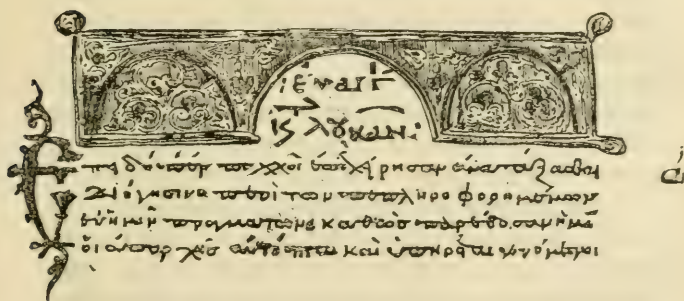 εὐαγγ
κτ λουκαν
Ἐπειδήπερ πολλοὶ ἐπεχείρησαν ἀνατάξασθαι
διήγησιν περὶ τῶν πεπληροφορημένων
ἐν ἡμῖν πραγμάτων καθὼς παρέδοσαν ἡμῖ
οἱ ἀπαρχῆς αὐτόπται καὶ ὑπηρέται γενόμενοι